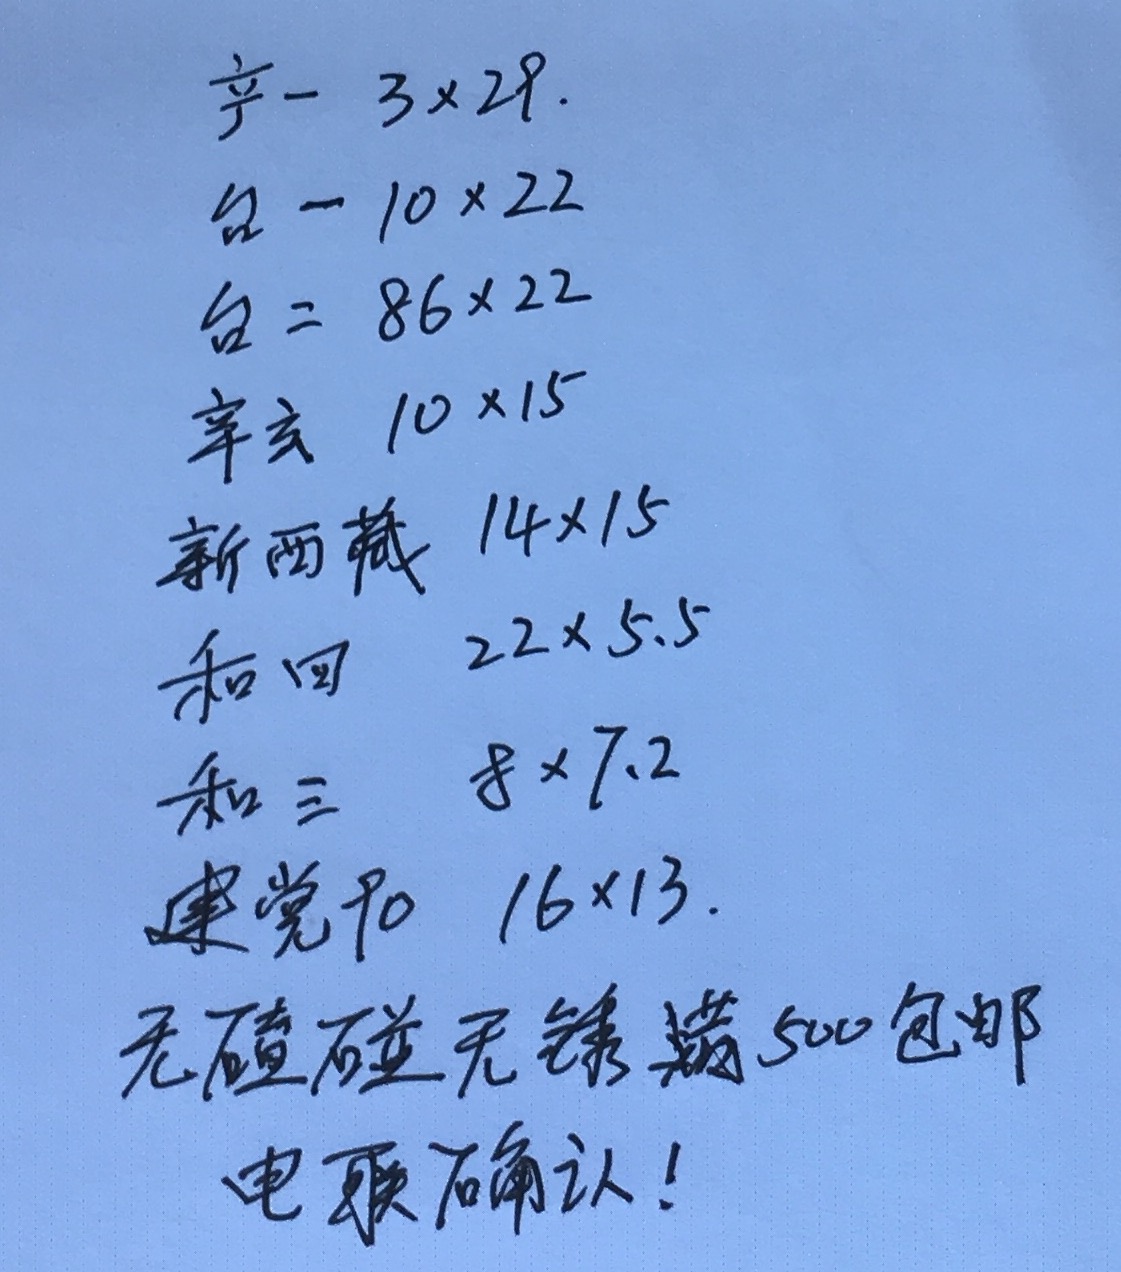 一 3×29.
台一 10×22
台二 86×22
辛亥 10×15
新西藏 14×15
和四 22×5.5
和三 8×7.2
建党90 16×13.
无磕碰无锈满500包邮
电联确认！